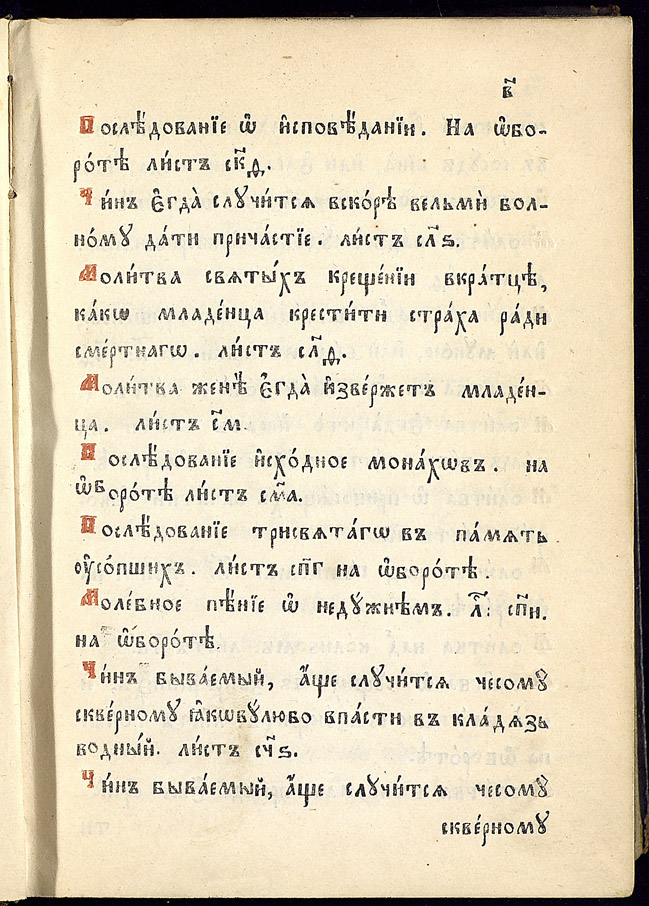 в҃
Послѣ́дованїе ѡ҆ и҆сповѣ́данїи. На ѡ҆бо-
ро́тѣ ли́стъ ск҃д.
Чи́нъ є҆гда̀ случи́тсѧ вско́рѣ вельмѝ бол-
но́мꙋ да́ти прича́стїе. ли́стъ сл҃ѕ.
Моли́тва свѧты́хъ креще́нїи вкра́тцѣ,
ка́кѡ младе́нца крести́ти стра́ха ра́ди
сме́ртнагѡ. ли́стъ сл҃д.
Моли́тва женѣ̀ є҆гда̀ и҆зве́ржетъ младе́н-
ца. ли́стъ с҃м.
Послѣ́дованїе и҆схо́дное мона́хѡвъ. на
ѡ҆боро́тѣ ли́стъ см҃а.
Послѣ́дованїе трисвѧта́гѡ въ па́мѧть
ᲂу҆со́пшихъ. ли́стъ сп҃г на ѡ҆боро́тѣ.
Моле́бное пѣ́нїе ѡ҆ недꙋ́жнѣмъ. л҃: сп҃и.
на ѡ҆боро́тѣ.
Чи́нъ быва́емый, а҆́ще случи́тсѧ чесомꙋ̀
скве́рномꙋ ꙗ҆́кѡвꙋлюбо впа́сти въ кла́дѧзь
во́дный. ли́стъ сч҃ѕ.
Чи́нъ быва́емый, а҆́ще случи́тсѧ чесомꙋ̀
скве́рномꙋ